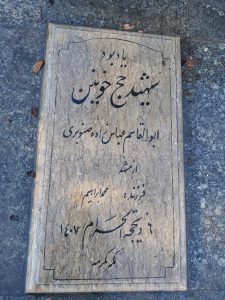 یادبود
شهید حج خونین
ابوالقاسم عباس زاده صنوبری
از مشهد
فرزند: محمد ابراهیم
۶ ذیحجه محرم ۱۴۰۷
مکه مکرمه